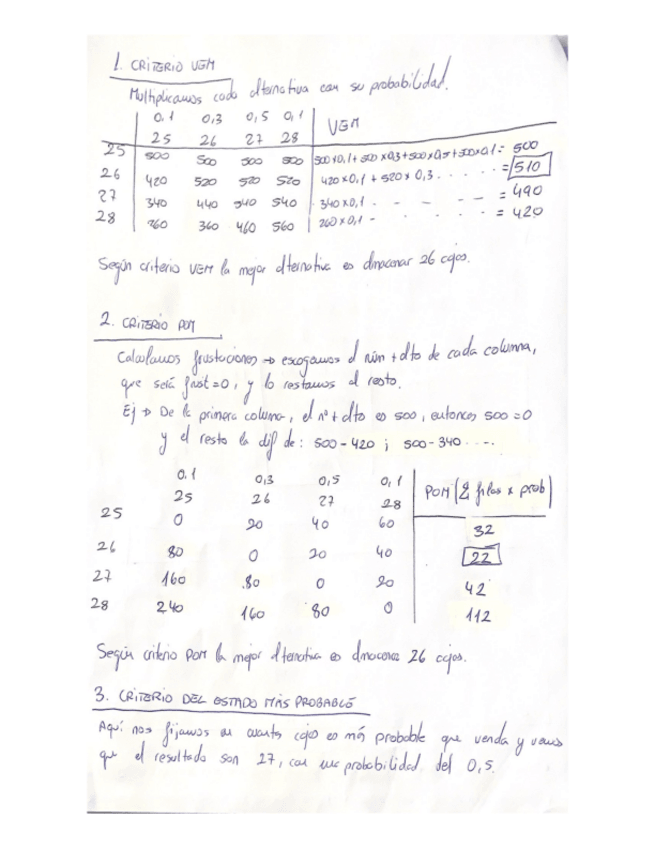 1. CRITERIO VEM
Multiplicamos cada alternativa con su probabilidad.
0.1 0,3 0,5 0,1 VEM
25 26 27 28
25 500 500 500 500 500x0,1+500x0,3+500x0,5+500x0,1= 500
26 420 520 520 520 420x0,1 + 520x0,3 . . . . . . = 510
27 340 440 540 540 340x0,1 . - - - - = 490
28 260 360 460 560 260x0,1 - = 420
Según criterio VEM la mejor alternativa es almacenar 26 cajas.
2. CRITERIO POM
Calculamos frustaciones → escogemos el núm + alto de cada columna,
que será frust=0, y lo restamos al resto.
Ej → De la primera columna, el nº + alto es 500, entonces 500=0
y el resto la dif de: 500-420 ; 500-340 . - - .
0.1 0,3 0,5 0,1 POM (Σ filas x prob)
25 26 27 28
25 0 20 40 60 32
26 80 0 20 40 22
27 160 80 0 20 42
28 240 160 80 0 112
Según criterio POM la mejor alternativa es almacenar 26 cajas.
3. CRITERIO DEL ESTADO MÁS PROBABLE
Aquí nos fijamos en cuantas cajas es más probable que venda y vemos
que el resultado son 27, con una probabilidad del 0,5.